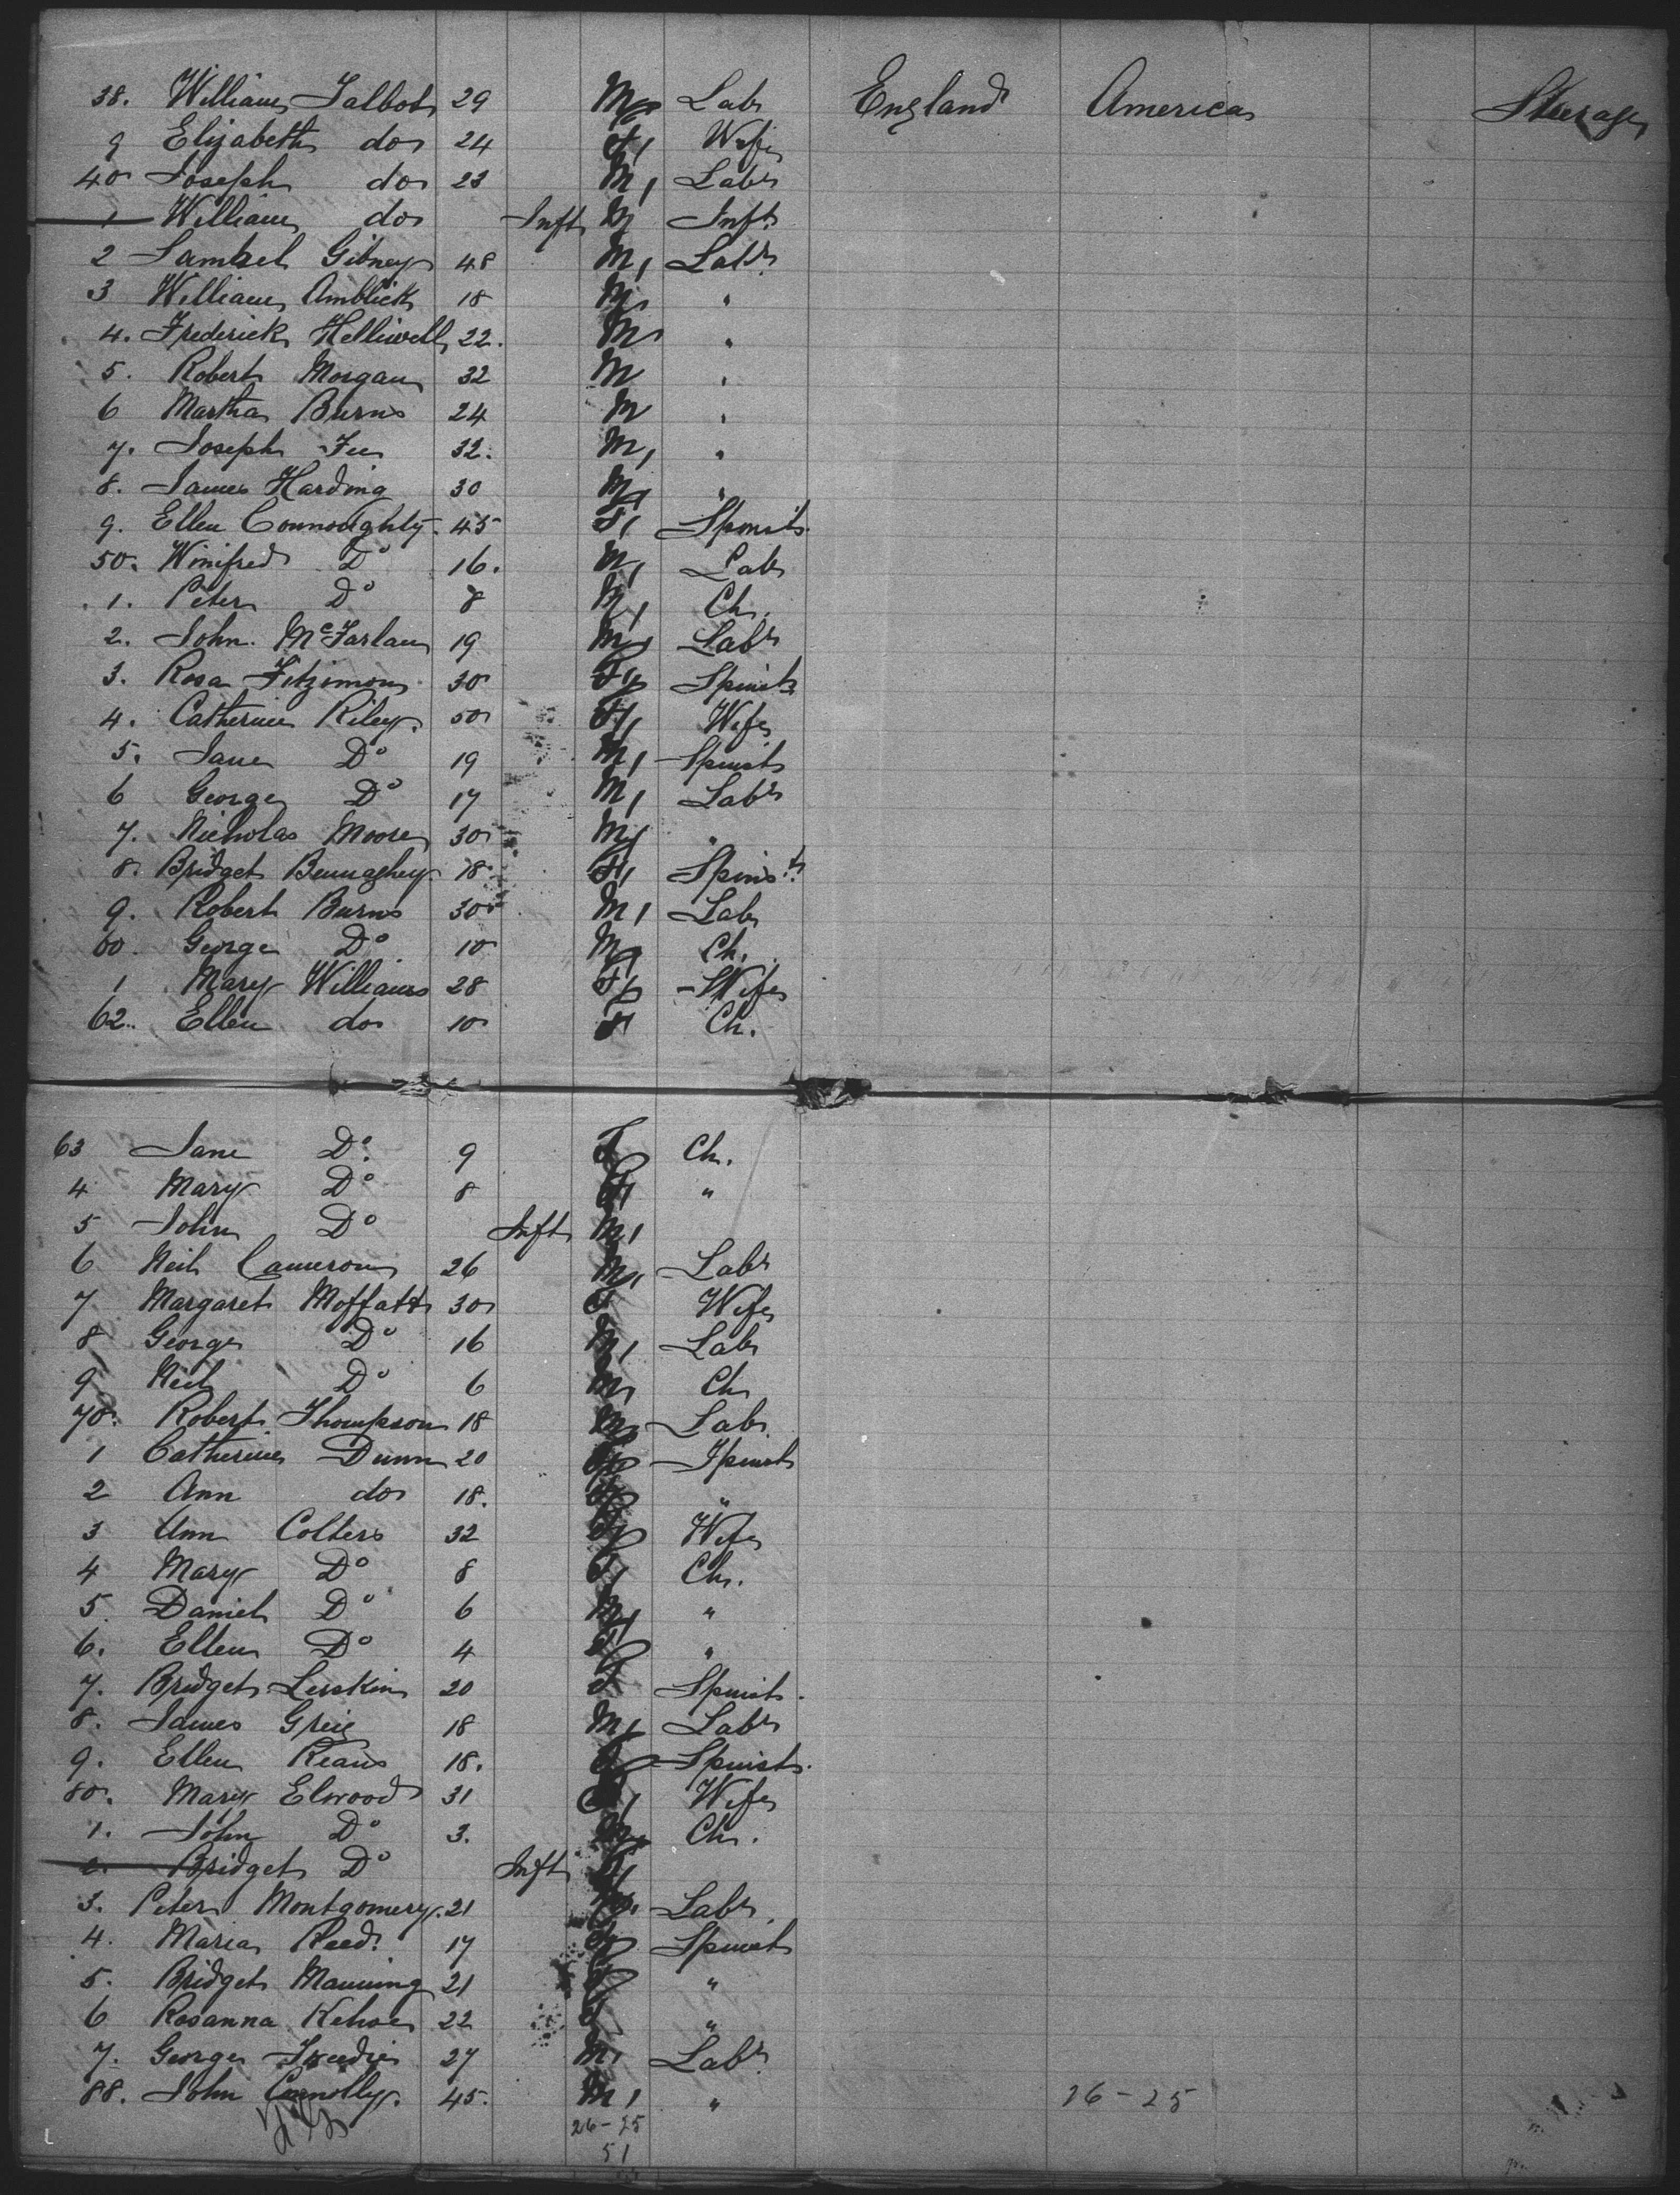 38. William Talbot 29 M Lab England America Steerage
9 Elizabeth do 24 F Wife
40 Joseph do 23 M Labr
1 William do Inft M Inft
2 Samuel Gibney 48 M Labr
3 William Amblick 18 M "
4. Frederick Helliwell 22. M "
5. Robert Morgan 32 M "
6 Martha Burns 24 M "
7. Joseph Fee 32. M "
8. James Harding 30 M "
9. Ellen Connoughty 45 F Spinst.
50. Winifred Do 16. M Lab
1. Peter Do 8 M Ch.
2. John McFarlan 19 M Labr
3. Rosa Fitzimon 30 F Spinst
4. Catherine Riley. 50 F Wife
5. Jane Do 19 M Spinst
6 George Do 17 M Labr
7. Nicholas Moore 30 M "
8. Bridget Bennaghey 18. F Spinst
9. Robert Burns 30 M Lab
60. George Do 10 M Ch.
1 Mary Williams 28 F Wife
62. Ellen do 10 F Ch.
63 Jane Do. 9 F Ch.
4 Mary Do 8 F "
5 John Do Inft M
6 Neil Cameron 26 M Labr
7 Margaret Moffatt 30 F Wife
8 George Do 16 M Lab
9 Neil Do 6 M Ch
70. Robert Thompson 18 M Lab.
1 Catherine Dunn 20 F Spinst
2 Ann do 18. F "
3 Ann Colters 32 F Wife
4 Mary Do 8 F Ch.
5. Daniel Do 6 M "
6. Ellen Do 4 F "
7. Bridget Lerskin 20 F Spinst.
8. James Greig 18 M Labr
9. Ellen Keans 18. F Spinst.
80. Mary Elwood 31 F Wife
1. John Do 3. M Ch.
2. Bridget Do Inft F
3. Peter Montgomery. 21 M Labr.
4. Maria Reed. 17 F Spinst
5. Bridget Manning 21 F "
6 Rosanna Kehoe 22 F "
7. George 27 M Labr
88. John Connolly. 45. M "
26-25 26-25
51